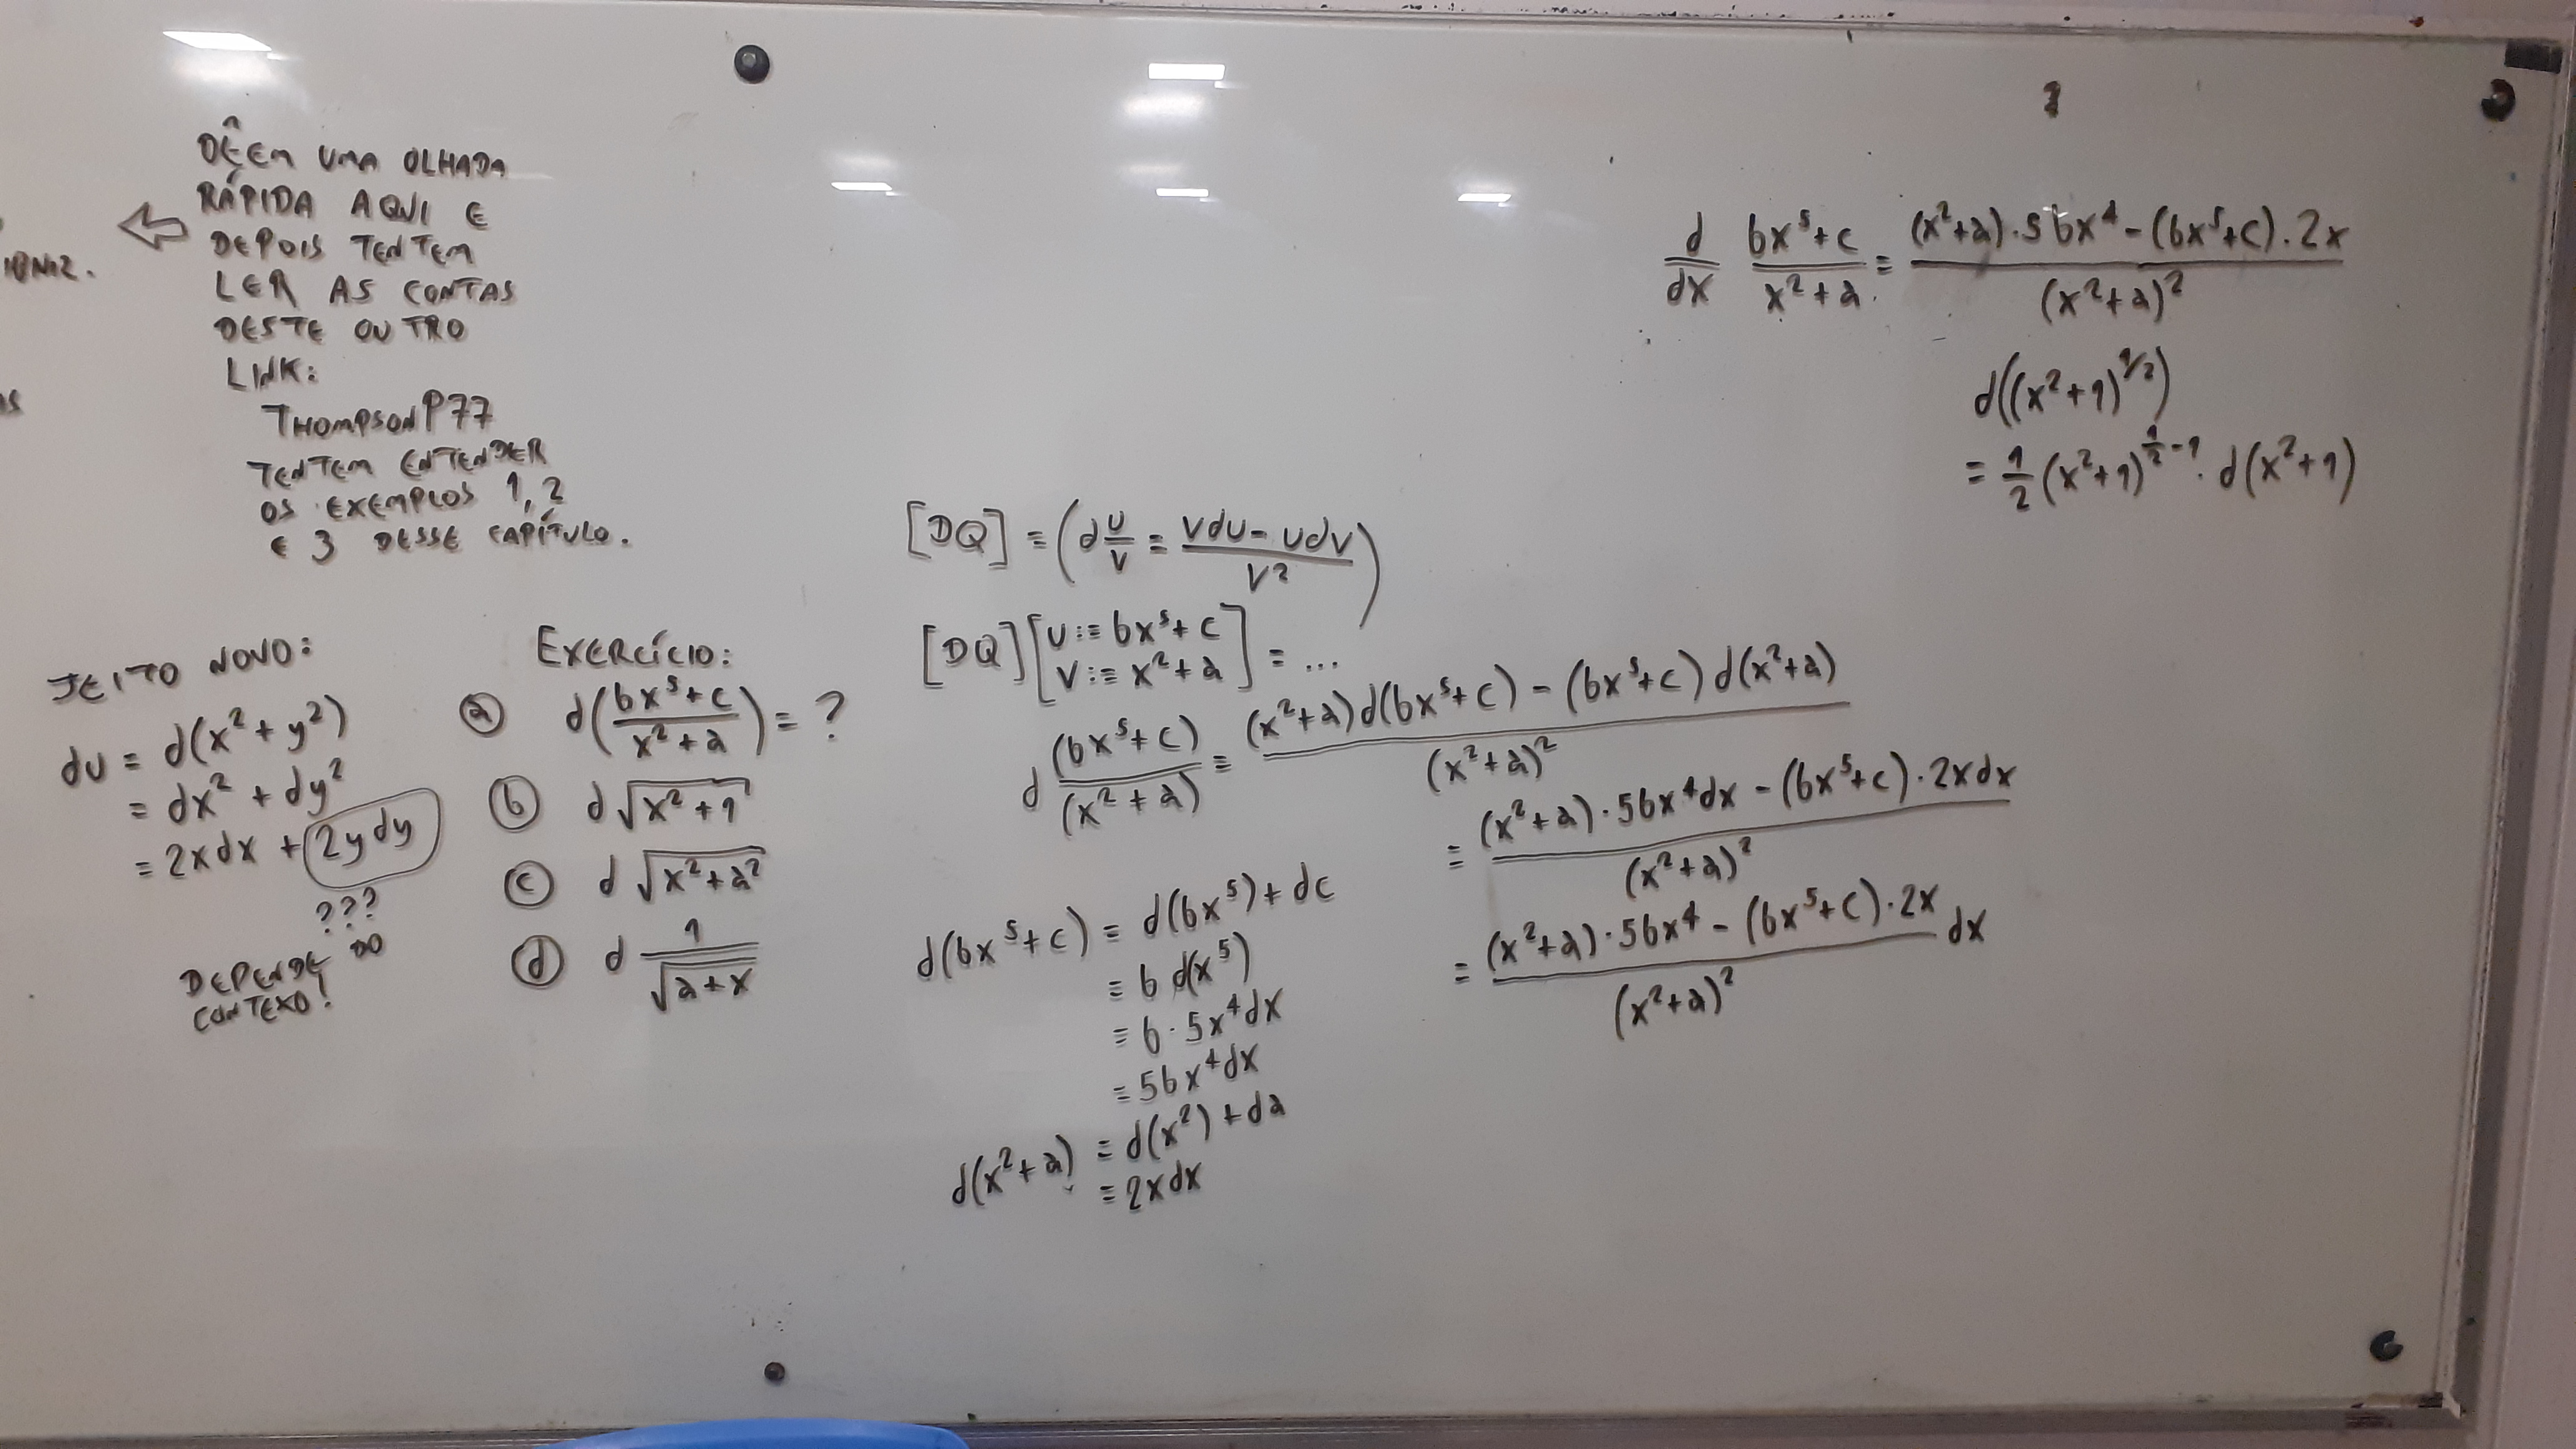 DÊEM UMA OLHADA
RÁPIDA AQUI E
DEPOIS TENTEM
LER AS CONTAS
DESTE OUTRO
LINK:
THOMPSONP77
TENTEM ENTENDER
OS EXEMPLOS 1, 2
E 3 DESSE CAPÍTULO.
JEITO NOVO:
du = d(x² + y²)
= dx² + dy²
= 2xdx + 2ydy
???
DEPENDE DO
CONTEXO!
EXERCÍCIO:
(a) d((bx⁵+c)/(x²+a)) = ?
(b) d√(x²+1)
(c) d√(x²+a²)
(d) d 1/√(a+x)
[DQ] = (d u/v = (vdu - udv)/v²)
[DQ][u := bx⁵+c
v := x²+a] = ...
d (bx⁵+c)/(x²+a) = ((x²+a)d(bx⁵+c) - (bx⁵+c)d(x²+a))/(x²+a)²
= ((x²+a)·5bx⁴dx - (bx⁵+c)·2xdx)/(x²+a)²
= ((x²+a)·5bx⁴ - (bx⁵+c)·2x)/(x²+a)² dx
d(bx⁵+c) = d(bx⁵) + dc
= b d(x⁵)
= b·5x⁴dx
= 5bx⁴dx
d(x²+a) = d(x²) + da
= 2xdx
d/dx (bx⁵+c)/(x²+a) = ((x²+a)·5bx⁴ - (bx⁵+c)·2x)/(x²+a)²
d((x²+1)^(1/2))
= 1/2 (x²+1)^(1/2 - 1) · d(x²+1)